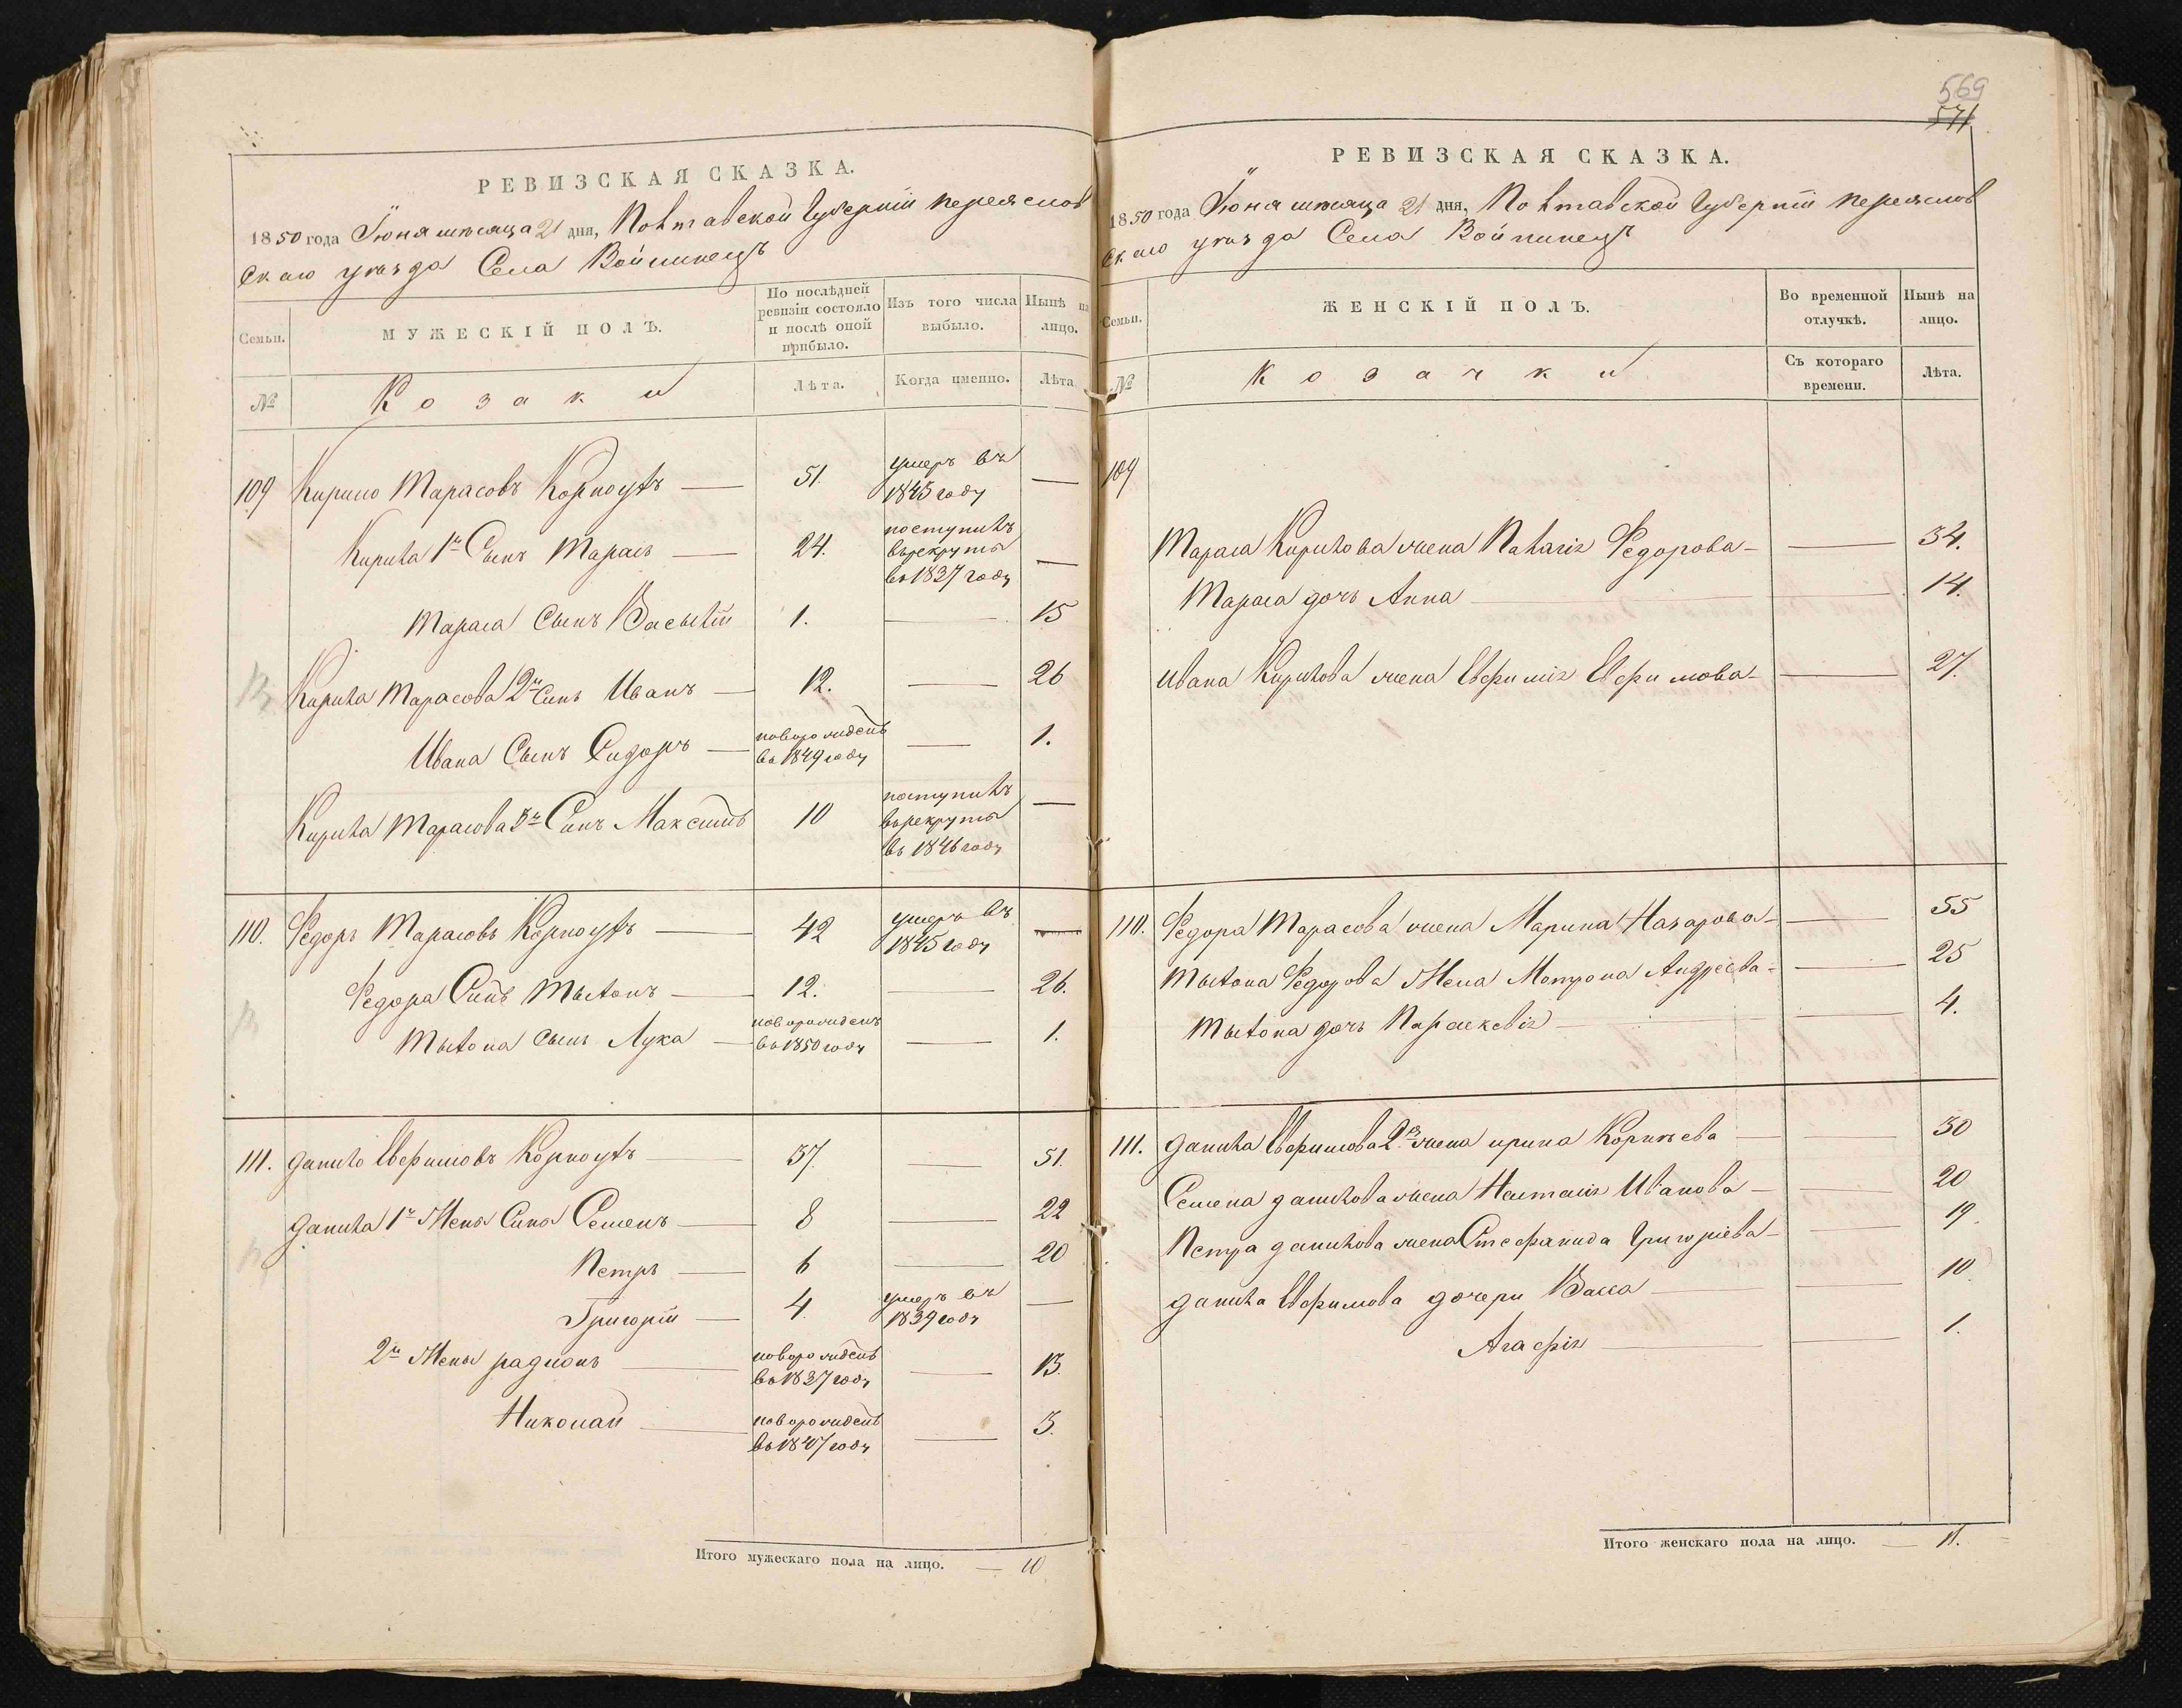 РЕВИЗСКАЯ СКАЗКА.
1850 года Іюня мѣсяца 21 дня, Полтавской Губерніи Переяслов
скаго уѣзда Села Войтинецъ
Семьи. МУЖЕСКІЙ ПОЛЪ. По послѣдней ревизіи состояло и послѣ оной прибыло. Изъ того числа выбыло. Нынѣ на лицо.
№ Козаки Лѣта. Когда именно. Лѣта
109 Кирило Тарасовъ Корноухъ — 51 умеръ въ 1843 году —
Кирила 1й Сынъ Тарасъ — 24. поступилъ въ рекруты въ 1837 году —
Тараса Сынъ Василій 1. — 15
Кирила Тарасова 2й Синъ Иванъ — 12. — 26
Ивана Сынъ Сидоръ — новорожденъ въ 1849 году — 1.
Кирила Тарасова 3й Синъ Максимъ 10 поступилъ въ рекруты въ 1846 году —
110. Федоръ Тарасовъ Корноухъ — 42 умеръ въ 1845 году —
Федора Синъ Платонъ — 12. — 26.
Платона Сынъ Лука — новорожденъ въ 1850 году — 1.
111. Данило Ефимовъ Корноухъ — 37. — 51.
Данила 1й Жены Сины Семенъ — 8 — 22
Петръ — 6 — 20
Григорій — 4. умеръ въ 1839 году —
2й Жены Радионъ — новорожденъ въ 1837 году — 13.
Николай — новорожденъ въ 1847 году — 3.
Итого мужескаго пола на лицо. — 10
569
571
РЕВИЗСКАЯ СКАЗКА.
1850 года Іюня мѣсяца 21 дня, Полтавской Губерніи Переяслов
скаго уѣзда Села Войтинецъ
Семьи. ЖЕНСКІЙ ПОЛЪ. Во временной отлучкѣ. Нынѣ на лицо.
№ Козачки Съ котораго времени. Лѣта.
109
Тараса Кирилова жена Наталія Федорова — — 34.
Тараса дочь Анна — — 14.
Ивана Кирилова жена Евфимія Ефимова — — 27.
110. Федора Тарасова жена Марина Назарова — — 55
Платона Федорова Жена Мотрона Андреева — — 25
Платона дочь Параскевія — — 4.
111. Данила Ефимова 2я жена Ирина Корнѣева — — 30
Семена Данилова жена Наталія Иванова — — 20
Петра Данилова жена Стефанида Григоріева — — 19.
Данила Ефимова дочери Васса — — 10
Агафія — — 1.
Итого женскаго пола на лицо. — 11.